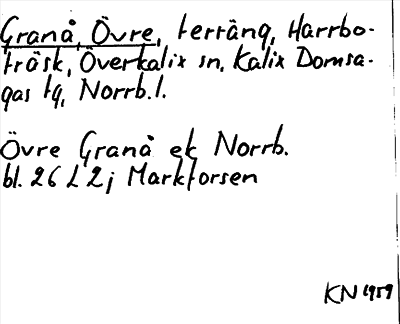 Granå, Övre, terräng, Harrbo-
träsk, Överkalix sn, Kalix Domsa-
gas tg, Norrb. l.
Övre Granå ek Norrb.
bl. 26 L 2 j Markforsen
KN 1959